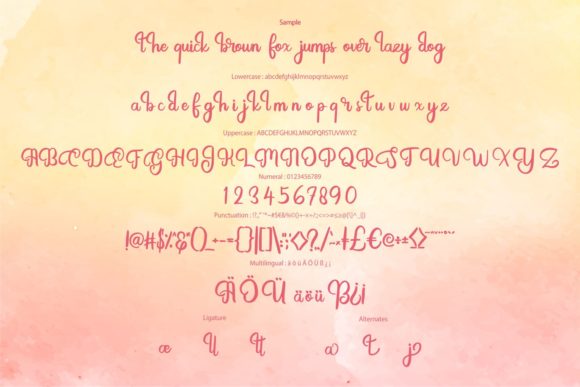 Sample
the quick broun fox jumps over lazy dog
Lowercase : abcdefghijklmnopqrstuvwxyz
abcdefghijklmnopqrstuvwxyz
Uppercase : ABCDEFGHIJKLMNOPQRSTUVWXYZ
ABCDEFGHIJKLMNOPQRSTUVWXYZ
Numeral : 0123456789
1234567890
Punctuation :
!@#$%^&*()_+-={}|[]\:;<>?,./
Multilingual : ä ö ü Ä Ö Ü ß ¿ ¡
Ä Ö Ü ä ö ü ß ¿ ¡
Ligature Alternates
æ